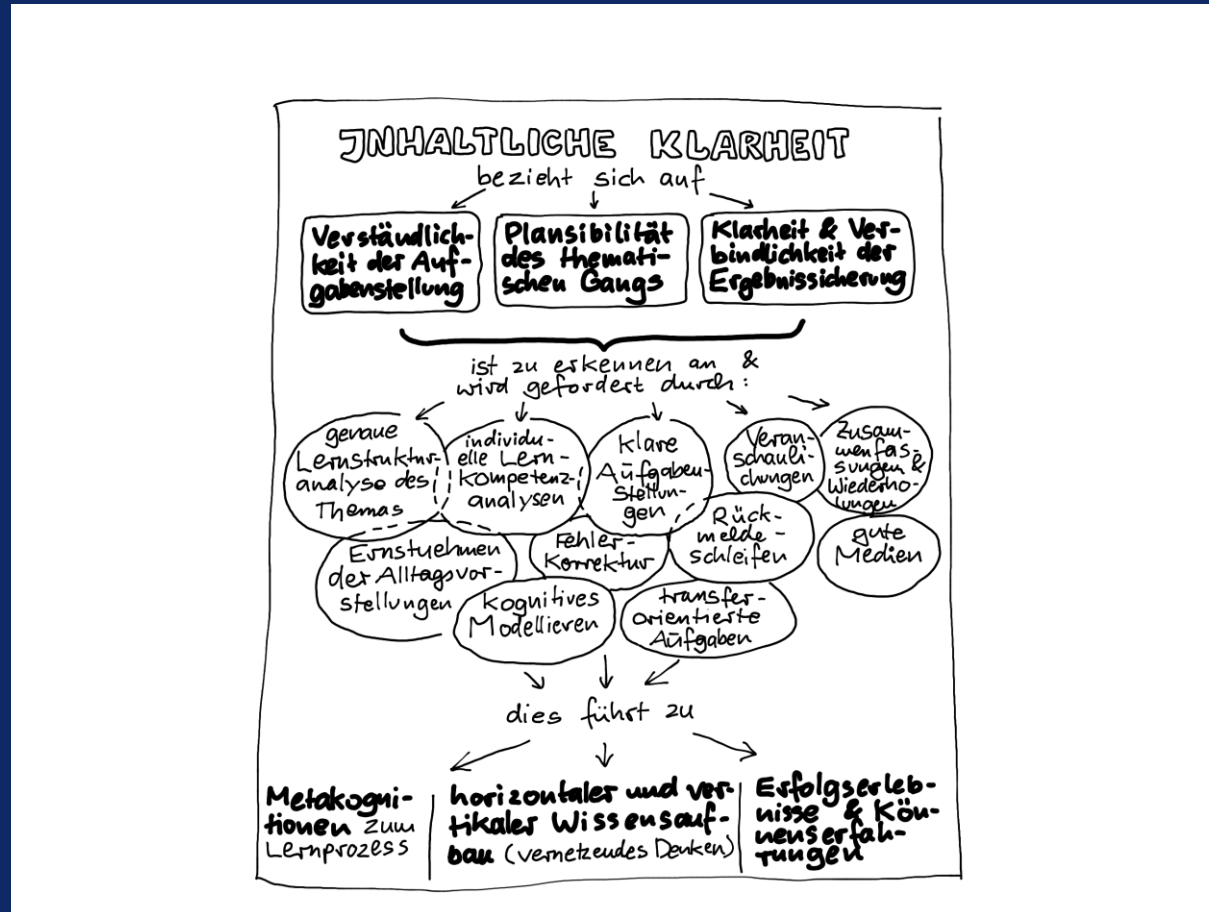 JNHALTLICHE KLARHEIT
bezieht sich auf
Verständlich-
keit der Auf-
gabenstellung
Plausibilität
des themati-
schen Gangs
Klarheit & Ver-
bindlichkeit der
Ergebnissicherung
ist zu erkennen an &
wird gefordert durch:
genaue
Lernstruktur-
analyse des
Themas
individu-
elle Lern-
kompetenz-
analysen
klare
Aufgaben-
stellun-
gen
Veran-
schauli-
chungen
Zusam-
menfas-
sungen &
Wiederho-
lungen
Ernstnehmen
der Alltagsvor-
stellungen
Fehler-
Korrektur
Rück-
melde-
schleifen
gute
Medien
kognitives
Modellieren
transfer-
orientierte
Aufgaben
dies führt zu
Metakogni-
tionen zum
Lernprozess
horizontaler und ver-
tikaler Wissensauf-
bau (vernetzendes Denken)
Erfolgserleb-
nisse & Kön-
nenserfah-
rungen